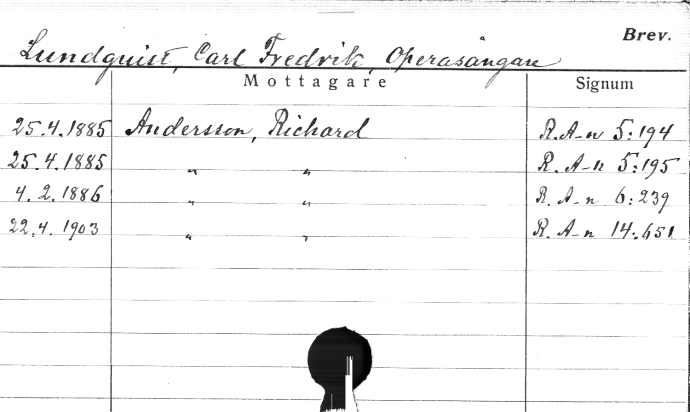 Brev.
Lundquist, Carl Fredrik, Operasångare
Mottagare Signum
25.4.1885 Andersson, Richard R.A-n 5:194
25.4.1885 " " R.A-n 5:195
4.2.1886 " " R.A-n 6:239
22.4.1903 " " R.A-n 14:651